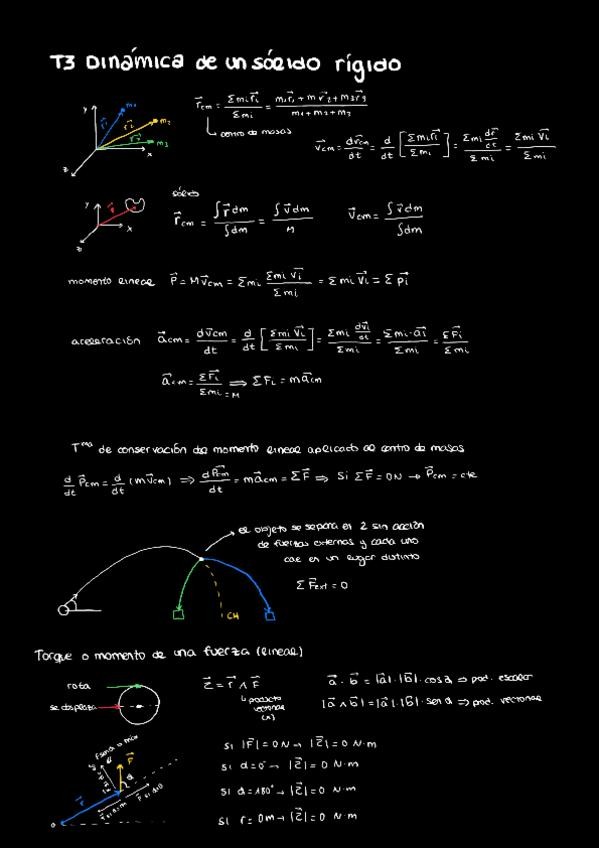 T3 Dinámica de un sólido rígido
y m₁ r⃗cm = Σmi r⃗i / Σmi = m₁r⃗₁ + m r⃗₂ + m₃r⃗₃ / m₁+m₂+m₂
r₁ r₂ m₂ r₃ m₃ x z
centro de masas v⃗cm = dr⃗cm/dt = d/dt [Σmi r⃗i / Σmi] = Σmi dr⃗/dt / Σmi = Σmi V⃗i / Σmi
sólido
y r⃗ x z r⃗cm = ∫r⃗ dm / ∫dm = ∫v⃗ dm / M V⃗cm = ∫v⃗ dm / ∫dm
momento lineal P⃗ = M v⃗cm = Σmi Σmi V⃗i / Σmi = Σmi V⃗i = Σ p⃗i
aceleración a⃗cm = dv⃗cm/dt = d/dt [Σmi V⃗i / Σmi] = Σmi dv⃗i/dt / Σmi = Σmi·a⃗i / Σmi = ΣF⃗i / Σmi
a⃗cm = ΣF⃗i / Σmi = M ⟹ ΣFi = m a⃗cm
Tᵐᵃ de conservación del momento lineal aplicado al centro de masas
d/dt P⃗cm = d/dt (m v⃗cm) ⇒ dP⃗cm/dt = m a⃗cm = ΣF⃗ ⇒ Si ΣF⃗ = 0N → P⃗cm = cte
el objeto se separa en 2 sin acción
de fuerzas externas y cada uno
cae en un lugar distinto
ΣF⃗ext = 0
CM
Torque o momento de una fuerza (lineal)
rota τ⃗ = r⃗ ∧ F⃗ a⃗ · b⃗ = |a⃗|·|b⃗|·cos α ⇒ pod. escalar
se desplaza producto vectorial (x) |a⃗ ∧ b⃗| = |a⃗|·|b⃗|·sen α ⇒ pod. vectorial
F⃗ α r⃗ o
si |F⃗| = 0 N → |τ⃗| = 0 N·m
si α = 0° → |τ⃗| = 0 N·m
si α = 180° → |τ⃗| = 0 N·m
si r = 0m → |τ⃗| = 0 N·m